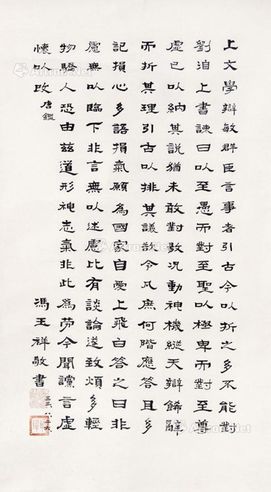 上文學辯敏群臣言事者引古今以折之多不能對
劉洎上書諫曰以至愚而對至聖以極卑而對至尊
虛已以納其說猶未敢對敭況動神機縱天辯飾辭
而折其理引古以排其議欲令凡庶何階應答且多
記損心多語損氣願為國家自愛上飛白答之曰非
慮無以臨下非言無以述慮比有談論遂致煩多輕
物驕人恐由茲道形神志氣非此為勞今聞讜言虛
懷以改 唐鑑
馮玉祥敬書